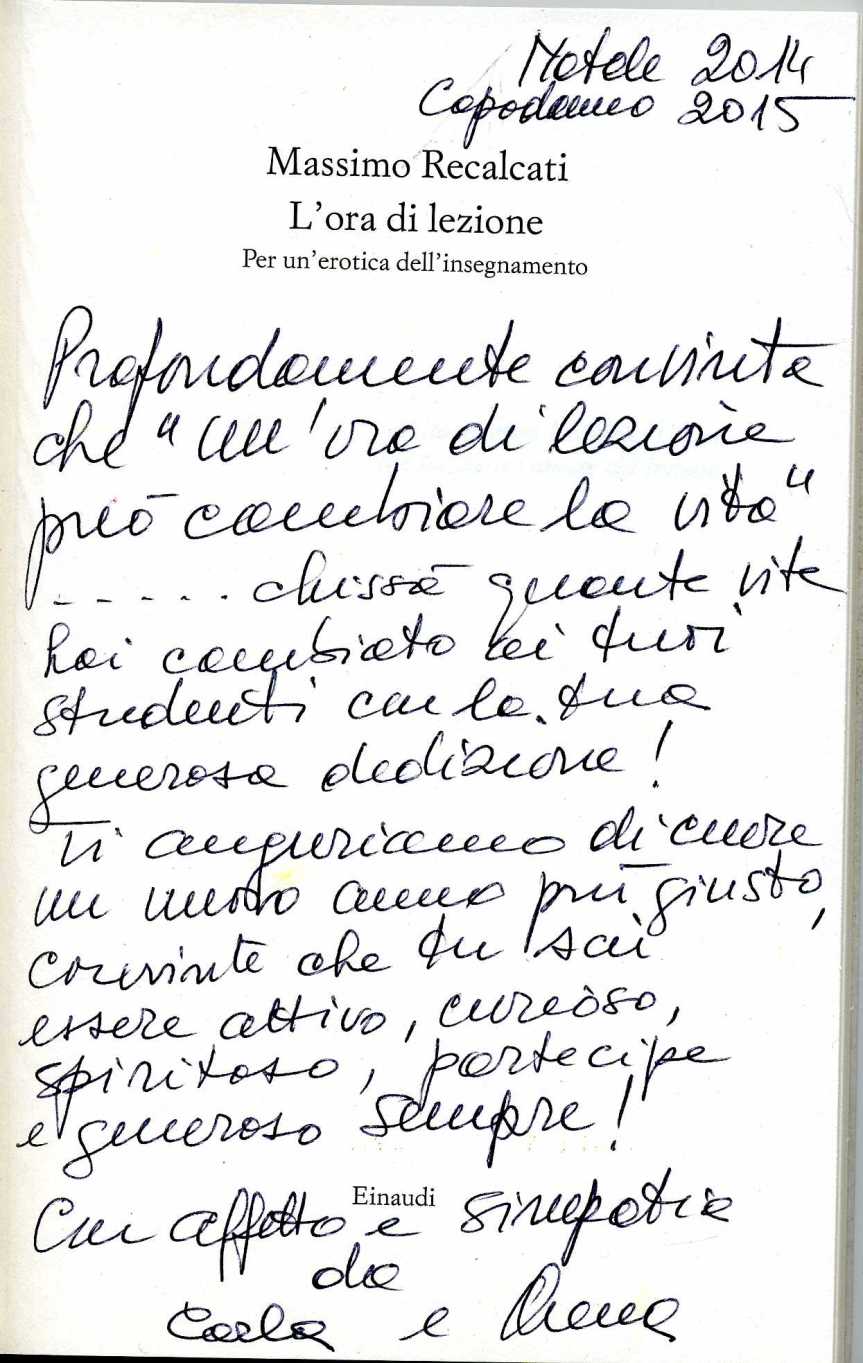 Natale 2014
Capodanno 2015
Massimo Recalcati
L'ora di lezione
Per un'erotica dell'insegnamento
Profondamente convinta
che "un'ora di lezione
può cambiare la vita"
_ _ _ . . . chissà quante vite
hai cambiato ai tuoi
studenti con la tua
generosa dedizione!
Ti auguriamo di cuore
un nuovo anno più giusto,
convinte che tu sai
essere attivo, curioso,
spiritoso, partecipe
e generoso sempre!
Einaudi
Con affetto e simpatia
da
Carla e